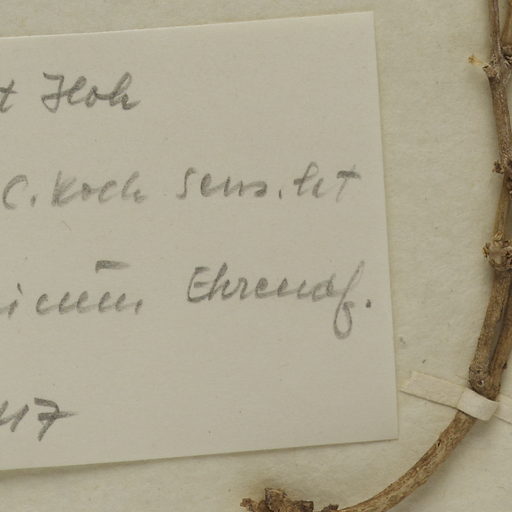 t Hok
C. Koch sens. lat
icum, Ehrendf.
117